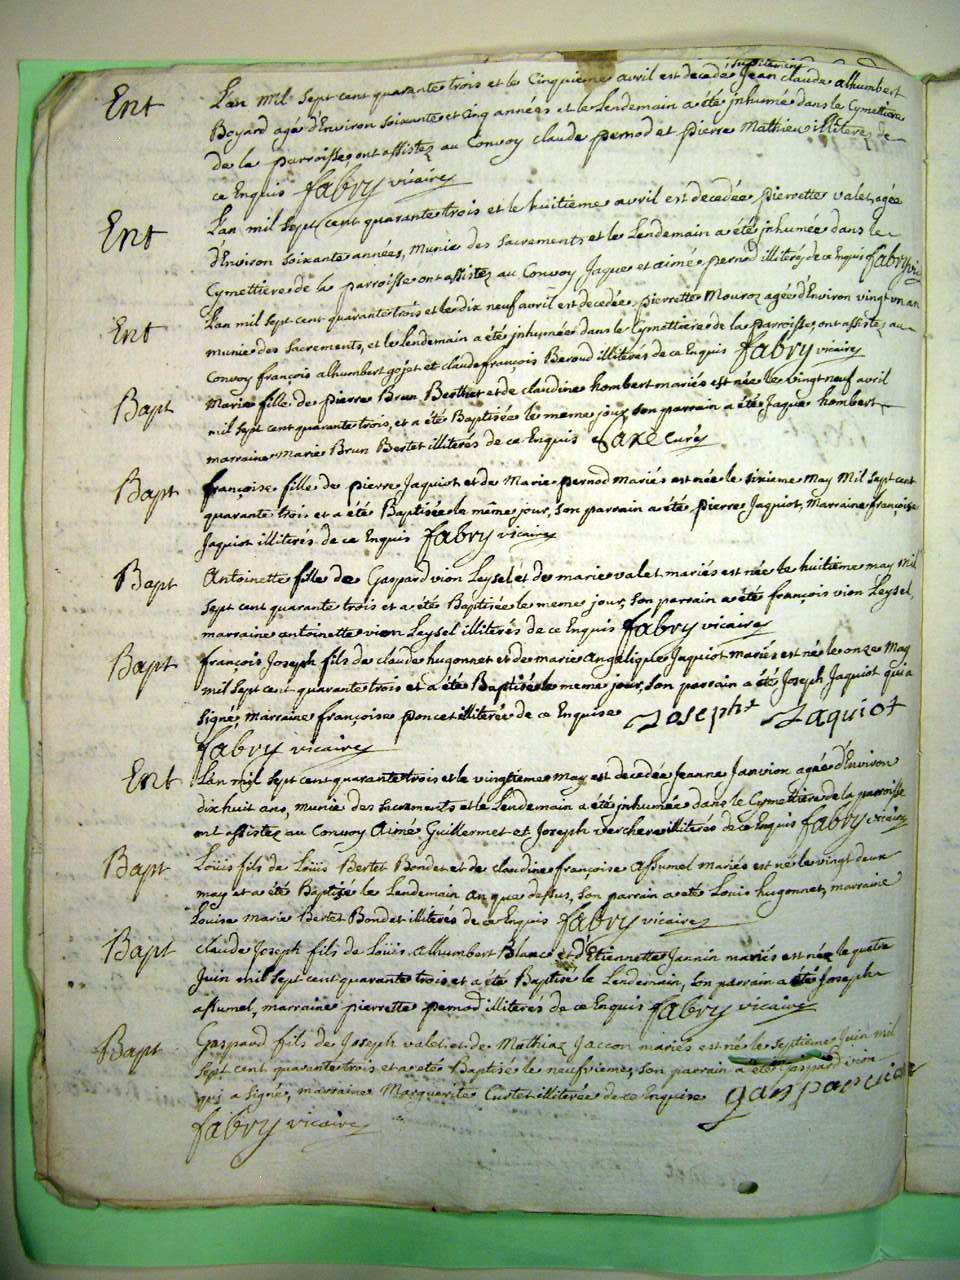 Ent L'an mil sept cent quarante trois et le Cinquieme avril est decedé Jean claude alhumbert
Boyard agé d'Environ soixante et Cinq années et le Lendemain a été jnhumé dans le Cymettiere
de la parroisse, ont assistez au Convoy claude pernod et pierre Mathieu illiteres de
ce Enquis fabry vicaire
Ent L'an mil sept cent quarante trois et le huitieme avril est decedée pierrette valet, agée
d'Environ soixante années, munie des sacrements et le Lendemain a été jnhumée dans le
Cymettiere de la parroisse ont assistez au Convoy Jaque et aimé pernod illiterés de ce Enquis fabry vic
Ent L'an mil sept cent quarante trois et le dix neuf avril est decedée pierrette Mouroz agée d'Environ vingt un an
munie des sacrements, et le lendemain a été jnhumée dans le Cymettiere de la parroisse, ont assistez au
Convoy françois alhumbert gojot et claude françois Beroud illiterés de ce Enquis fabry vicaire
Bapt Marie fille de pierre Brun Berthet et de claudine hombert mariés est née le vingt neuf avril
mil sept cent quarante trois, et a été Baptisée le meme jour son parrain a été Jaque hombert
marraine Marie Brun Bertet illiterés de ce Enquis curé
Bapt françoise fille de pierre Jaquiot et de Marie pernod mariés est née le sixieme May Mil sept cent
quarante trois et a été Baptisée le même jour, son parrain a été pierre Jaquiot, Marraine françoise
Jaquiot illiteres de ce Enquis fabry vicaire
Bapt Antoinette fille de Gaspard vion Leysel et de marie valet mariés est née le huitieme may mil
sept cent quarante trois et a été Baptisée le meme jour, son parrain a été françois vion Leysel,
marraine antoinette vion Leysel illiterés de ce Enquis fabry vicaire
Bapt françois Joseph fils de claude hugonnet et de marie angelique Jaquiot mariés est né le onze May
mil sept cent quarante trois et a été Baptisé le meme jour, son parrain a été Joseph Jaquiot qui a
signé, marraine françoise poncet illiterée de ce Enquise Joseph Jaquiot
fabry vicaire
Ent L'an mil sept cent quarante trois et le vingtieme may est decedée Jeanne Janvion agée d'Environ
dix huit ans, munie des sacrements et le Lendemain a été jnhumée dans le Cymettiere de la parroisse
ont assistez au Convoy Aimé Guillermet et Joseph verchere illiterés de ce Enquis fabry vicaire
Bapt Loüis fils de Loüis Bertet Bondet et de claudine françoise assumel mariés est né le vingt deux
may et a été Baptizé le Lendemain an que dessus, son parrain a été Louis hugonnet, marraine
Louise Marie Bertet Bondet illiterés de ce Enquis fabry vicaire
Bapt claude Joseph fils de Loüis alhumbert Blanc et d'Etiennette Jannin mariés est née le quatre
Juin mil sept cent quarante trois et a été Baptisé le Lendemain, son parrain a été Joseph
assumel, marraine pierrette pernod illiterés de ce Enquis fabry vicaire
Bapt Gaspard fils de Joseph valet et de Mathiaz Jaccon mariés est né le septieme Juin mil
sept cent quarante trois et a eté Baptisé le neufvieme, son parrain a été Gaspard vion
qui a signé, marraine Marguerite Curtet illiterée de ce Enquise
fabry vicaire